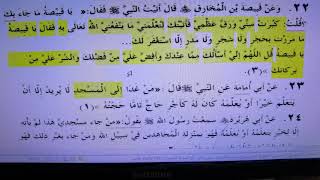 ٢٢. وعن قبيصة بن المخارق ﷺ قال: أتيت النبي ﷺ فقال: «يا قبيصة ما جاء بك
قلت: كبرت سني ورق عظمي فأتيتك لتعلمني ما ينفعني الله به فقال: يا قبيصة
ما مررت بحجر ولا شجر ولا مدر إلا استغفر لك
يا قبيصة قل اللهم إني أسألك مما عندك وأفض علي من فضلك وانشر علي من
بركاتك» (٣).
٢٣. عن أبي أمامة عن النبي ﷺ قال: «من غدا إلى المسجد لا يريد إلا أن
يتعلم خيرا أو يعلمه كان له كأجر حاج تاما حجته» (١)
٢٤. عن أبي هريرة سمعت رسول الله ﷺ يقول: «من جاء مسجدي هذا لم يأته
إلا لخير يتعلمه أو يعلمه فهو بمنزلة المجاهدين في سبيل الله ومن جاء بغير ذلك فهو